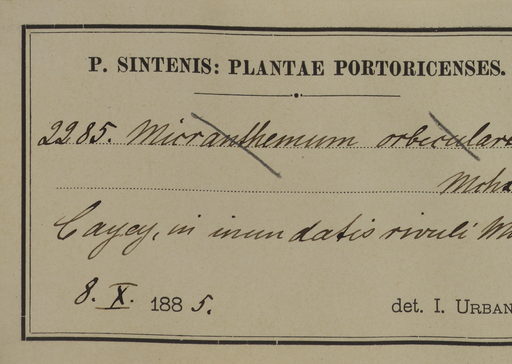 P. SINTENIS: PLANTAE PORTORICENSES.
2285. Micranthemum orbiculare
Cayey, in inundatis rivuli
8. X. 1885.
det. I. URBAN